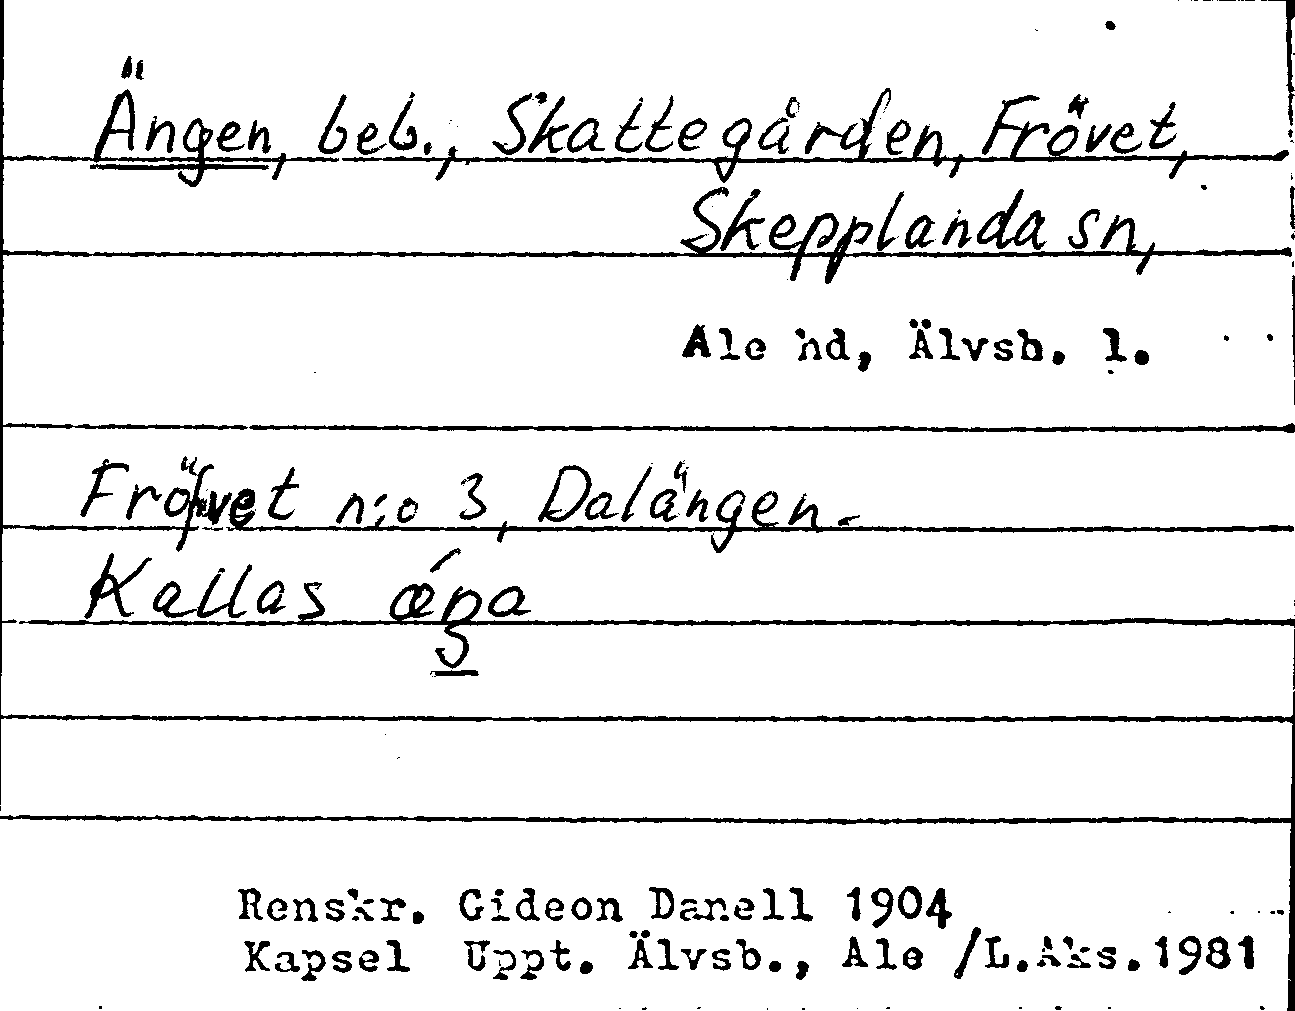 Ängen, beb., Skattegården, Frövet,
Skepplanda sn,
Ale hd, Älvsb. l.
Frövet n:o 3, Dalängen.
Kallas
Renskr. Gideon Danell 1904
Kapsel Uppt. Älvsb., Ale /L.Aks.1981